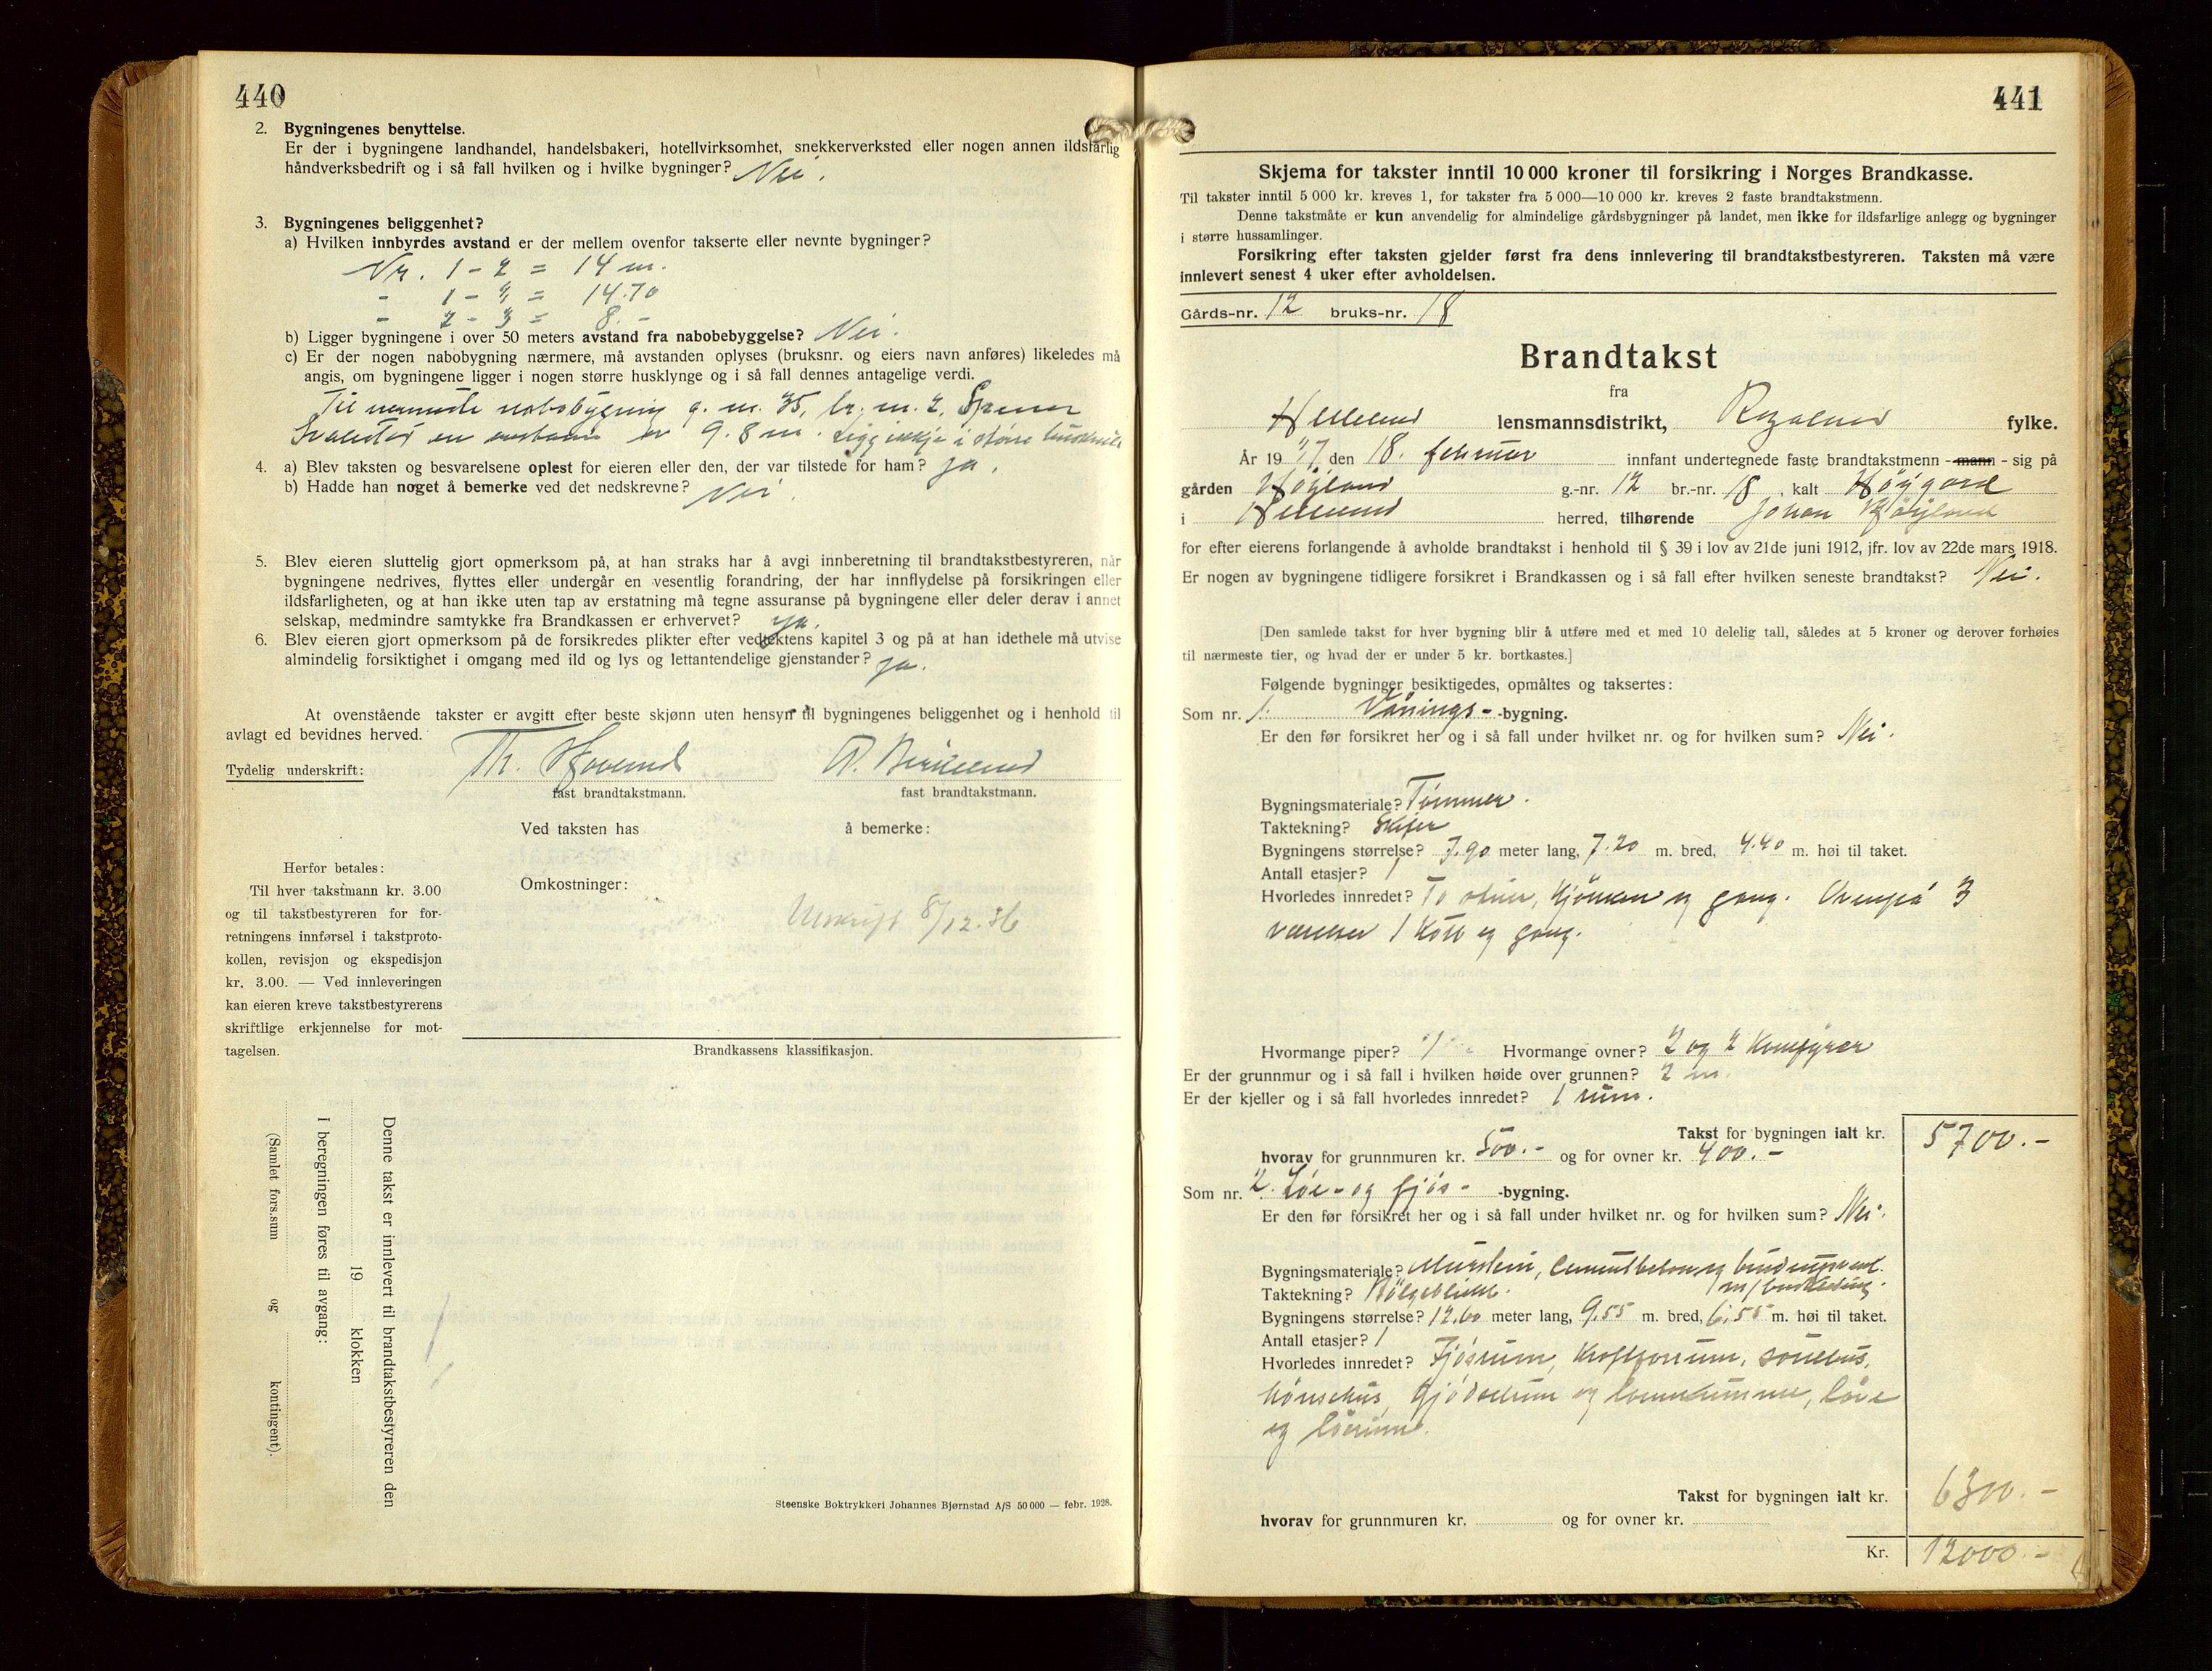 440
2. Bygningenes benyttelse.
Er der i bygningene landhandel, handelsbakeri, hotellvirksomhet, snekkerverksted eller nogen annen ildsfarlig
håndverksbedrift og i så fall hvilken og i hvilke bygninger? Nei.
3. Bygningenes beliggenhet?
a) Hvilken innbyrdes avstand er der mellem ovenfor takserte eller nevnte bygninger?
Nr. 1 - 2 = 14 m.
- 1 - = 14.70
- 2 - 3 = 8. -
b) Ligger bygningene i over 50 meters avstand fra nabobebyggelse? Nei.
c) Er der nogen nabobygning nærmere, må avstanden oplyses (bruksnr. og eiers navn anføres) likeledes må
angis, om bygningene ligger i nogen større husklynge og i så fall dennes antagelige verdi.
Til nærmeste nabobygning g. nr. 35, br. nr. 2,
en avstand av 9.8 m. Ligg ikkje i større
4. a) Blev taksten og besvarelsene oplest for eieren eller den, der var tilstede for ham? ja.
b) Hadde han noget å bemerke ved det nedskrevne? Nei.
5. Blev eieren sluttelig gjort opmerksom på, at han straks har å avgi innberetning til brandtakstbestyreren, når
bygningene nedrives, flyttes eller undergår en vesentlig forandring, der har innflydelse på forsikringen eller
ildsfarligheten, og at han ikke uten tap av erstatning må tegne assuranse på bygningene eller deler derav i annet
selskap, medmindre samtykke fra Brandkassen er erhvervet? ja.
6. Blev eieren gjort opmerksom på de forsikredes plikter efter vedtektens kapitel 3 og på at han idethele må utvise
almindelig forsiktighet i omgang med ild og lys og lettantendelige gjenstander? ja.
At ovenstående takster er avgitt efter beste skjønn uten hensyn til bygningenes beliggenhet og i henhold til
avlagt ed bevidnes herved.
Tydelig underskrift: Th.
fast brandtakstmann. fast brandtakstmann.
Ved taksten has å bemerke:
Herfor betales:
Til hver takstmann kr. 3.00
og til takstbestyreren for for-
retningens innførsel i takstproto-
kollen, revisjon og ekspedisjon
kr. 3.00. — Ved innleveringen
kan eieren kreve takstbestyrerens
skriftlige erkjennelse for mot-
tagelsen.
Omkostninger:
Utskrift 8/12.36
Brandkassens klassifikasjon.
Denne takst er innlevert til brandtakstbestyreren den
19 klokken
I beregningen føres til avgang:
(Samlet fors.sum og kontingent).
Steenske Boktrykkeri Johannes Bjørnstad A/S 50 000 — febr. 1928.
441
Skjema for takster inntil 10 000 kroner til forsikring i Norges Brandkasse.
Til takster inntil 5 000 kr. kreves 1, for takster fra 5 000—10 000 kr. kreves 2 faste brandtakstmenn.
Denne takstmåte er kun anvendelig for almindelige gårdsbygninger på landet, men ikke for ildsfarlige anlegg og bygninger
i større hussamlinger.
Forsikring efter taksten gjelder først fra dens innlevering til brandtakstbestyreren. Taksten må være
innlevert senest 4 uker efter avholdelsen.
Gårds-nr. 12 bruks-nr. 18
Brandtakst
fra
Helleland lensmannsdistrikt, Rogaland fylke.
År 19 den 18. februar innfant undertegnede faste brandtakstmenn - mann - sig på
gården Höyland g.-nr. 12 br.-nr. 18, kalt Höygard
i Helleland herred, tilhørende Johan Höyland
for efter eierens forlangende å avholde brandtakst i henhold til § 39 i lov av 21de juni 1912, jfr. lov av 22de mars 1918.
Er nogen av bygningene tidligere forsikret i Brandkassen og i så fall efter hvilken seneste brandtakst? Nei.
[Den samlede takst for hver bygning blir å utføre med et med 10 delelig tall, således at 5 kroner og derover forhøies
til nærmeste tier, og hvad der er under 5 kr. bortkastes.]
Følgende bygninger besiktigedes, opmåltes og taksertes:
Som nr. 1. Vånings- -bygning.
Er den før forsikret her og i så fall under hvilket nr. og for hvilken sum? Nei.
Bygningsmateriale? Tømmer.
Taktekning? Skifer
Bygningens størrelse? 7.90 meter lang, 7.20 m. bred, 4.40 m. høi til taket.
Antall etasjer? 1
Hvorledes innredet? To stuer, kjöken og gang. Ovenpå 3
værelser 1 kott og gang.
Hvormange piper? 1 Hvormange ovner? 2 og 2 komfyrer
Er der grunnmur og i så fall i hvilken høide over grunnen? 2 m.
Er der kjeller og i så fall hvorledes innredet? 1 rum.
Takst for bygningen ialt kr. 5700.-
hvorav for grunnmuren kr. 500.- og for ovner kr. 400.-
Som nr. 2. Löe- og fjös- -bygning.
Er den før forsikret her og i så fall under hvilket nr. og for hvilken sum? Nei.
Bygningsmateriale? Murstein, cementbetong og
Taktekning? Bölgeblikk. m/bordkledning.
Bygningens størrelse? 12.60 meter lang, 9.55 m. bred, 6.55 m. høi til taket.
Antall etasjer? 1
Hvorledes innredet? Fjösrum, kraftforrum, sauehus,
hönsehus, gjödselrum og landkumme, låve
og lörum.
Takst for bygningen ialt kr. 6300.-
hvorav for grunnmuren kr. og for ovner kr.
Kr. 12000.-